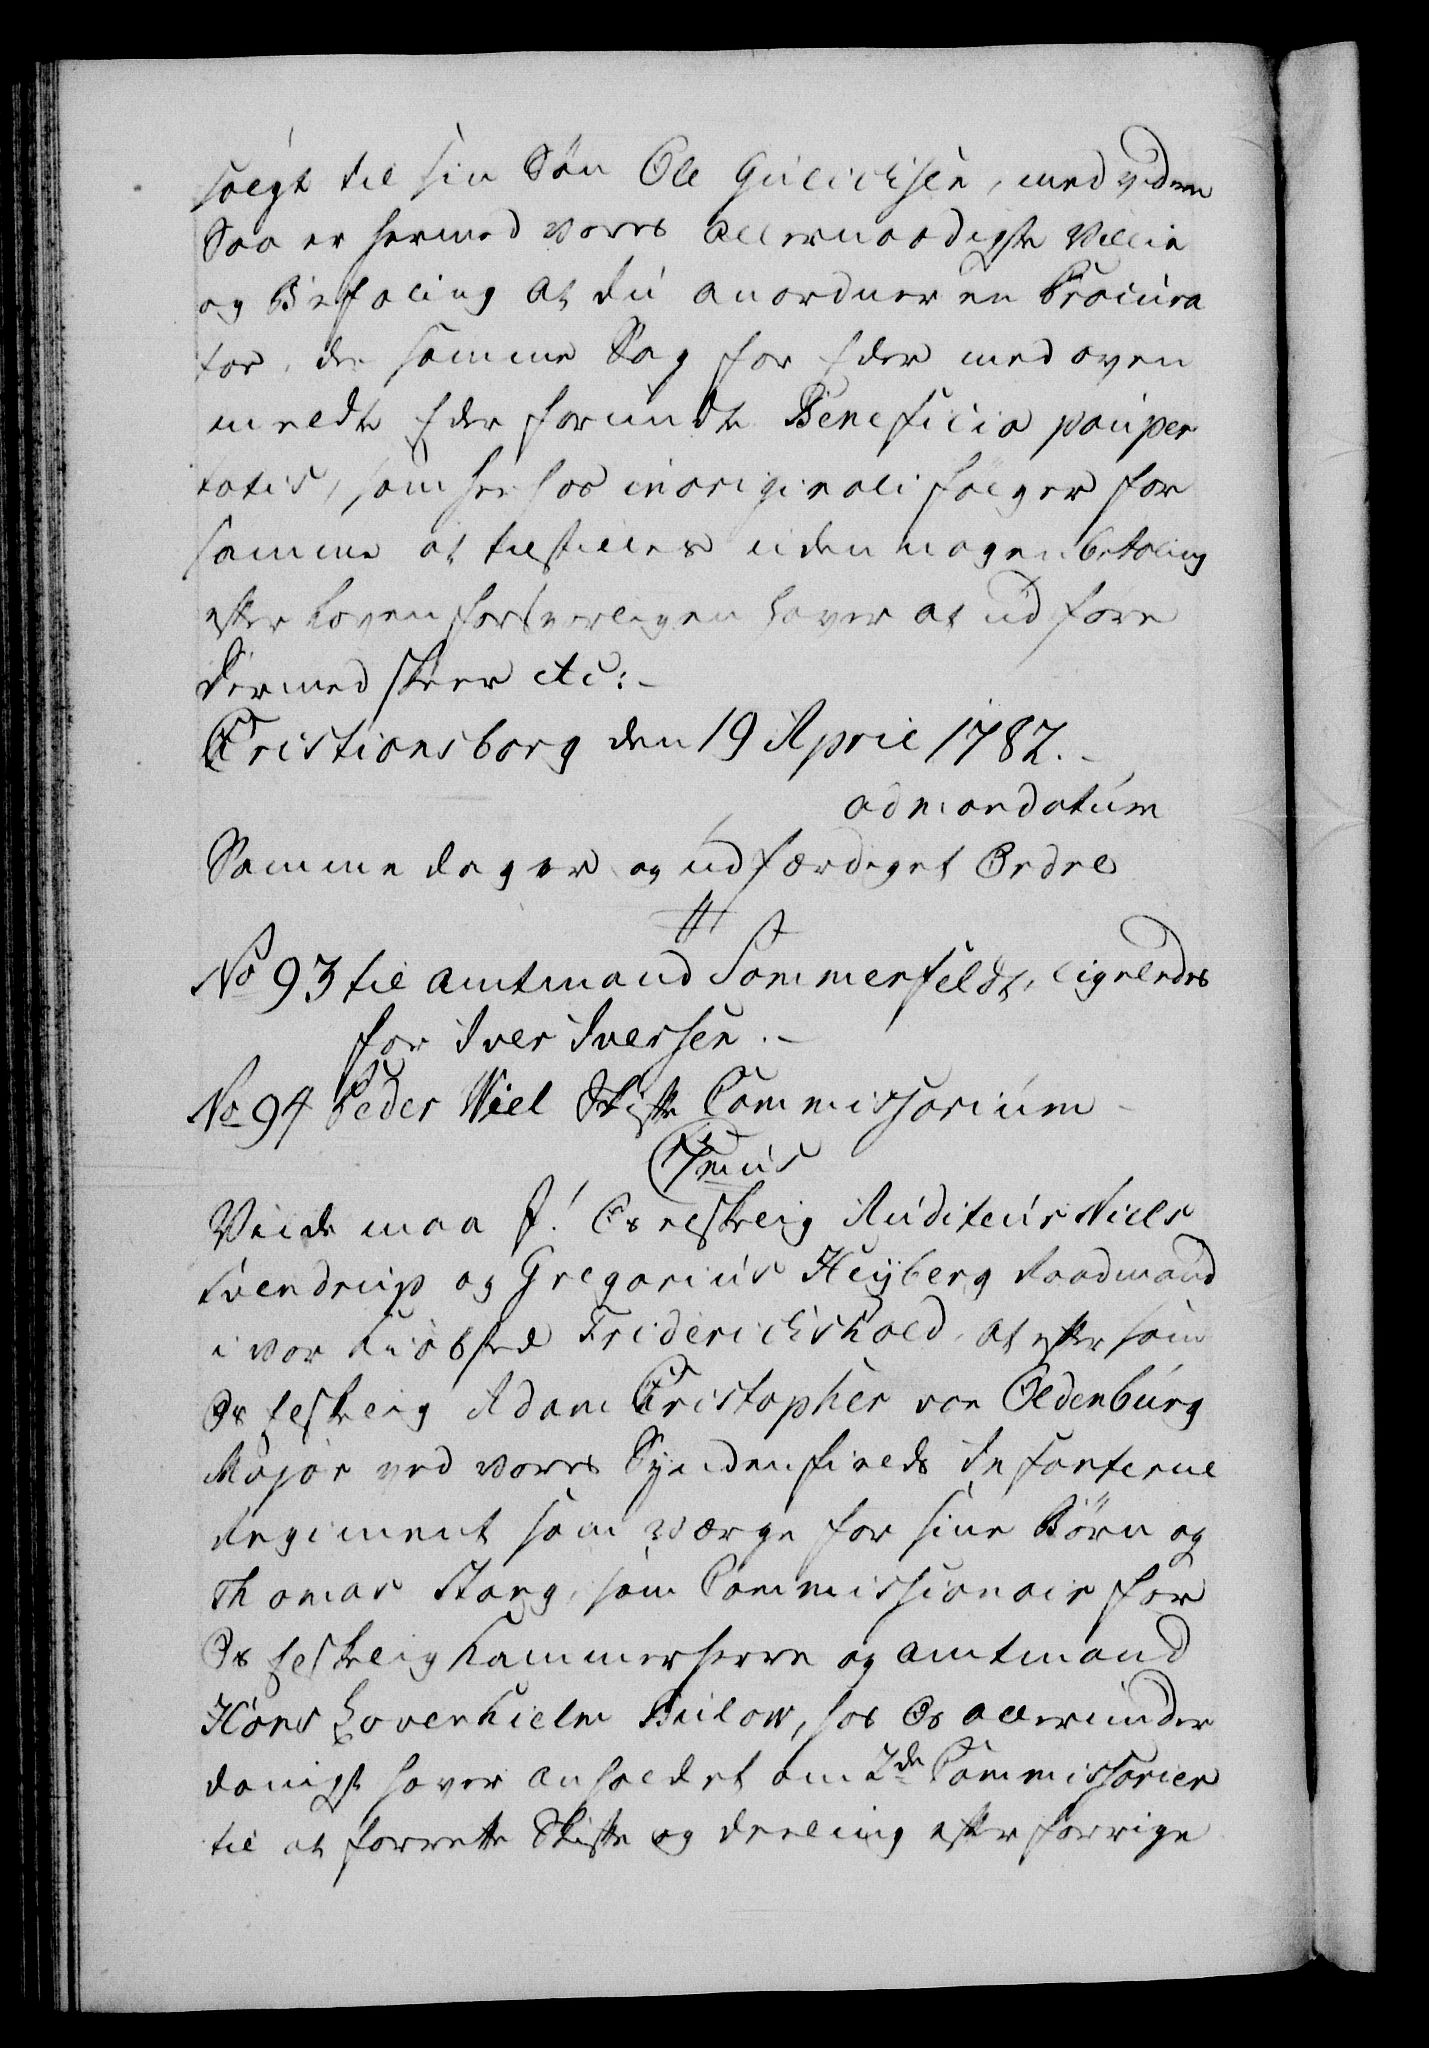 solgt til sin Søn Ole Gulichsen, med viden
Saa er hermed vores allernaadigste Villie
og Befaling at du anordner en Procura
tor, der samme Sag for Eder med oven
meldte Eder forundte Beneficio pauper
tatis, som herhos in originali følger for
samme at tilstilles uden nogen betaling
efter Loven forsvarligen haver at udføre
Dermed skeer etc:
Cristiansborg den 19 April 1782.
ad mandatum
Samme dag er og udfærdiget Ordre
No 93 til Amtmand Sommerfeldt, ligeledes
for Iver Iversen.
No 94 Peder Wiel Skifte Commissorium
C 7mus
Viide maa f! Os elskelig Auditeur Niels
Svendrup og Gregorius Heyberg Raadmand
i vor Kiøbsted Friderichshald, at eftersom
Os elskelig Adam Cristopher von Oldenburg
Major ved vores Syndenfields Infanterie
Regiment som værge for sine Børn og
Thomas Stang, som Commissionair for
Os elskelig Kammerherre og Amtmand
Hans Løvenhielm Bulow, hos Os allerunder
danigst haver anholdet om 2de Commissarier
til at forrette Skifte og deeling efter forrige